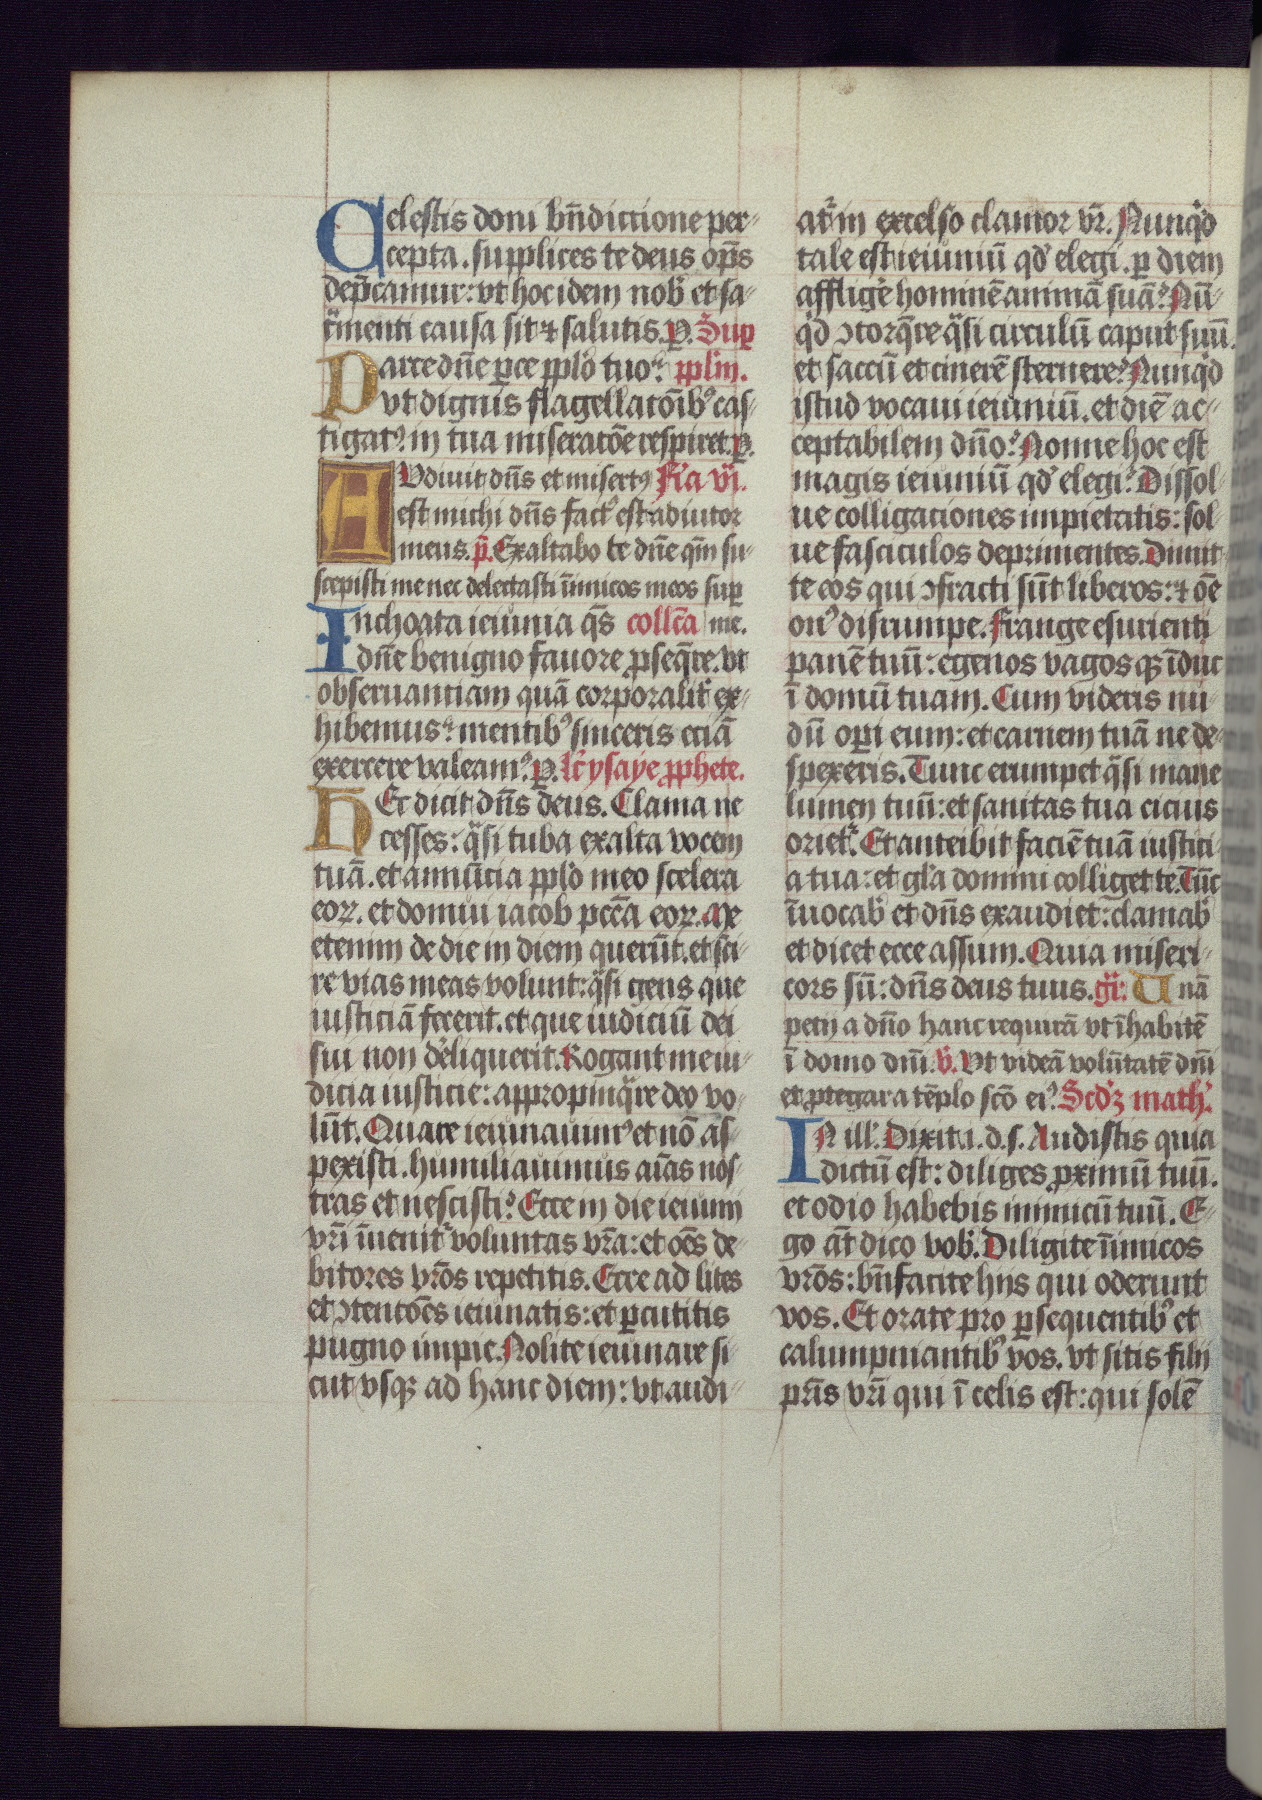 Celestis doni bn̄dictione per-
cepta. supplices te deus op̄s
dep̄camur: vt hoc idem nob̾ et sa-
cͣmenti causa sit ⁊ salutis. P. Sup̱
Parce dn̄e p̱ce pplo̾ tuo: pplm̾.
vt dignis flagellatōib⁹ cas-
tigat⁹ in tua miseratōe respiret. P.
AVdiuit dn̄s et misert⁹ Fͥa vi.
est michi dn̄s fact⁹ est adiutor
meus. p̄. Exaltabo te dn̄e qm̄ su-
scepisti me nec delectasti īimicos meos sup̱
Inchoata ieiunia qs̄ collc̄a me.
dn̄e benigno fauore ꝓseqͣre. vt
obseruantiam quā corporalit̾ ex-
hibemus: mentib⁹ sinceris eciā
exercere valeam⁹. P. lc̄ ysaye ꝓphete.
Hec dicit dn̄s deus. Clama ne
cesses: qͣsi tuba exalta vocem
tuā. et annūcia pplo̾ meo scelera
eoꝝ. et domui iacob pcc̄a eoꝝ. Me
etenim de die in diem querūt. et sci-
re vias meas volunt: qͣsi gens que
iusticiā fecerit. et que iudiciū dei
sui non de̾liquerit. Rogant me iu-
dicia iusticie: appropinqͣre deo vo-
lūt. Quare ieiunauim⁹ et nō as-
pexisti. humiliauimus aīas nos-
tras et nescisti? Ecce in die ieiunii
vrī īuenit̾ voluntas vrā: et oēs de-
bitores vrōs repetitis. Ecce ad lites
et ↄtentōēs ieiunatis: et ꝑcutitis
pugno impie. Nolite ieiunare si-
cut vsqꝫ ad hanc diem: vt audi-
at̾ in excelso clamor vr̄. Nunqͥd
tale est ieiuniū qd̾ elegi. ꝑ diem
afflige̾ hominē animā suā? Nū-
qͥd ↄtorqͣre qͣsi circulū caput suū.
et saccū et cinerē sternere? Nunqͥd
istud vocaui ieiuniū. et diē ac-
ceptabilem dn̄o? Nonne hoc est
magis ieiuniū qd̾ elegi? Dissol-
ue colligaciones impietatis: sol-
ue fasciculos deprimentes. Dimit-
te eos qui ↄfracti sūt liberos: ⁊ oē
on⁹ disrumpe. Frange esurienti
panē tuū: egenos vagosqꝫ īduc
ī domū tuam. Cum videris nu-
dū oꝑi eum: et carnem tuā ne de-
spexeris. Tunc erumpet qͣsi mane
lumen tuū: et sanitas tua cicius
oriet̾. Et anteibit faciē tuā iustici-
a tua: et glͥa domini colliget te. Tūc
īuocab̾ et dn̄s exaudiet: clamab̾
et dicet ecce assum. Quia miseri-
cors sū: dn̄s deus tuus. gͥ: Unā
petij a dn̄o hanc requirā vt īhabitē
ī domo dnī. v̾. Vt videā volūtatē dnī
et ꝓtegar a tēplo scō ei⁹. Scd̾ꝫ math⁹.
IN ill̾. Dixit i. d. s. Audistis quia
dictū est: diliges ꝓximū tuū.
et odio habebis inimicū tuū. E-
go āt dico vob̾. Diligite īimicos
vrōs: bn̄facite hijs qui oderunt
vos. Et orate pro ꝑsequentib⁹ et
calumpniantib⁹ vos. vt sitis filij
prīs vrī qui ī celis est: qui solē